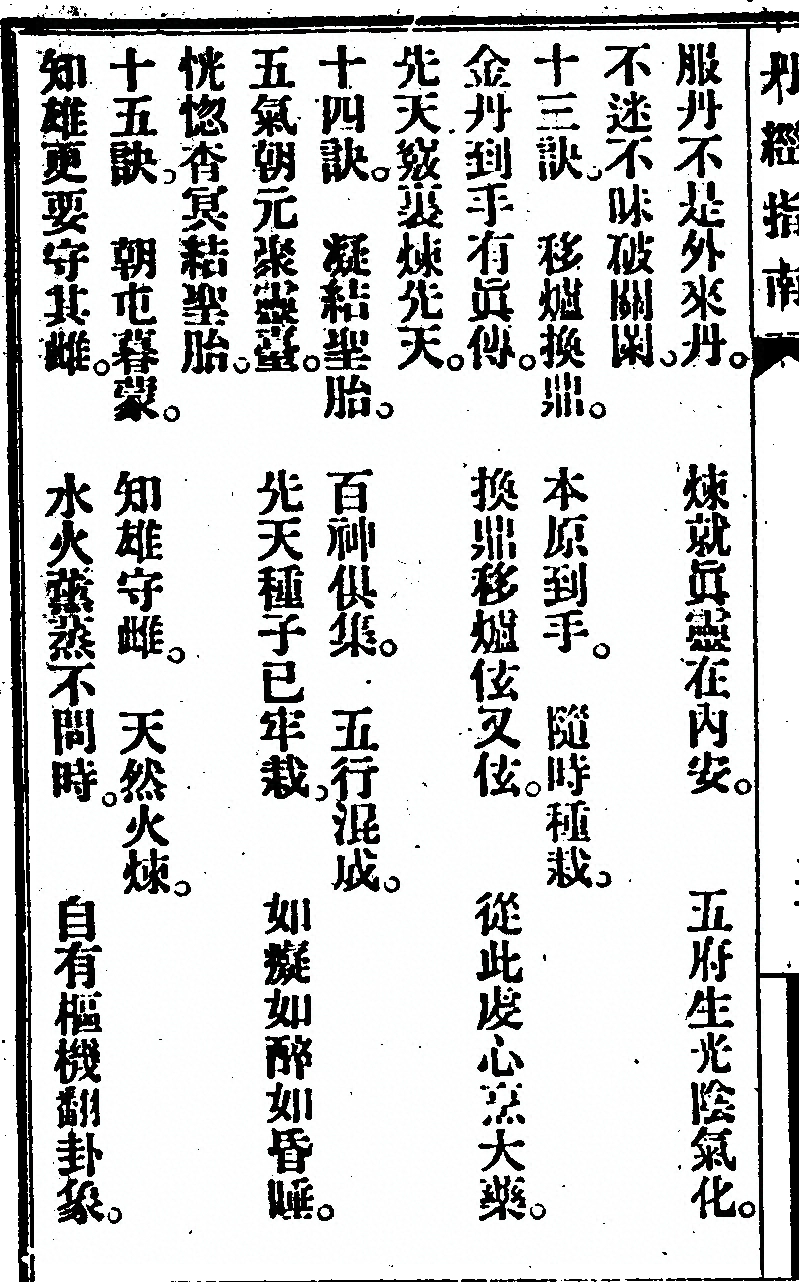 丹經指南
服丹不是外來丹。煉就眞靈在內安。五府生光陰氣化。
不迷不昧破關閑。
十三訣。移爐換鼎。本原到手。隨時種栽。
金丹到手有眞傳。換鼎移爐伭又伭。從此虔心烹大藥。
先天竅裏煉先天。
十四訣。凝結聖胎。百神俱集。五行混成。
五氣朝元聚靈臺。先天種子已牢栽。如癡如醉如昏睡。
恍惚杳冥結聖胎。
十五訣。朝屯暮蒙。知雄守雌。天然火煉。
知雄更要守其雌。水火薰蒸不問時。自有樞機翻卦象。